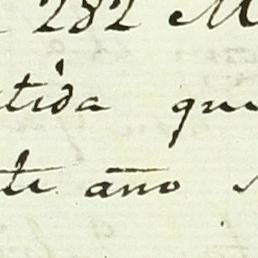 282 M
tida que
te año